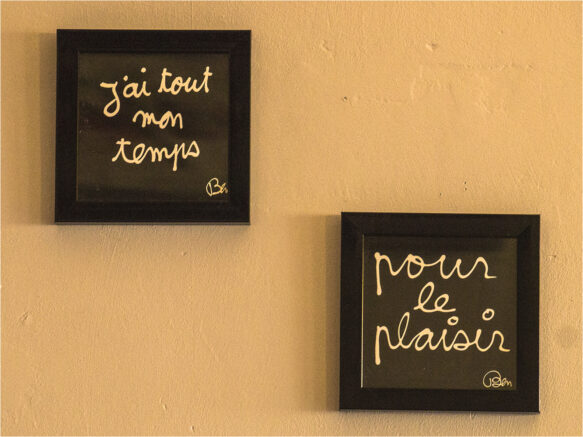 j'ai tout
mon
temps
Ben
pour
le
plaisir
Ben